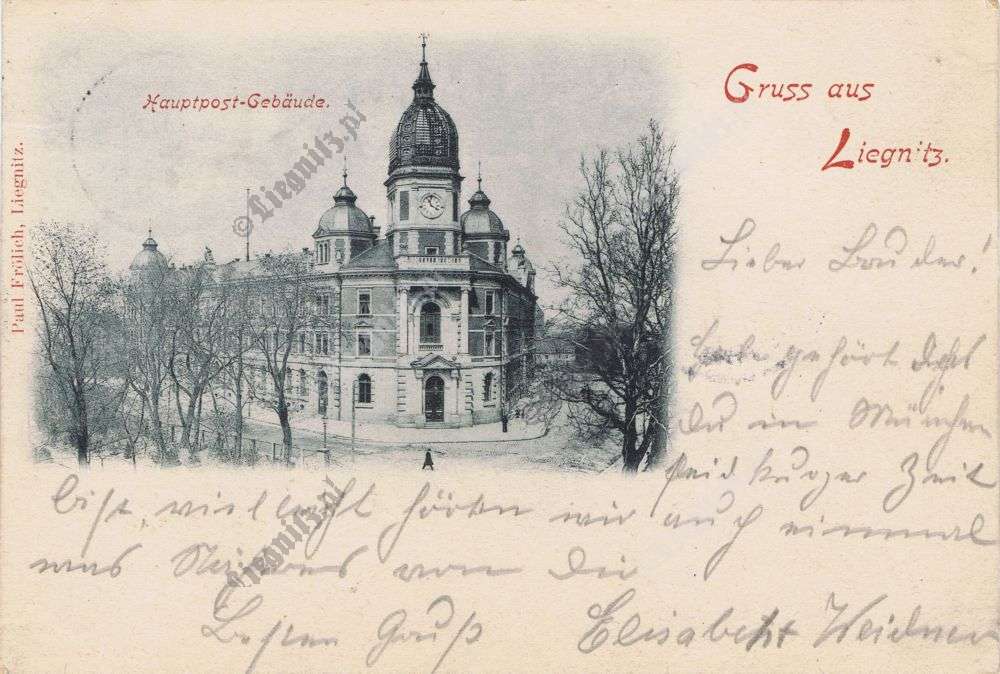 Hauptpost-Gebäude.
Gruss aus
Liegnitz.
Paul Frölich, Liegnitz.
©Liegnitz.pl
Lieber Bruder!
gehört daß
Du in München
seid kurzer Zeit
bist, vielleicht hören wir auch einmal
was von Dir
Liegnitz.pl
Besten Gruß
Elisabeth Weidner